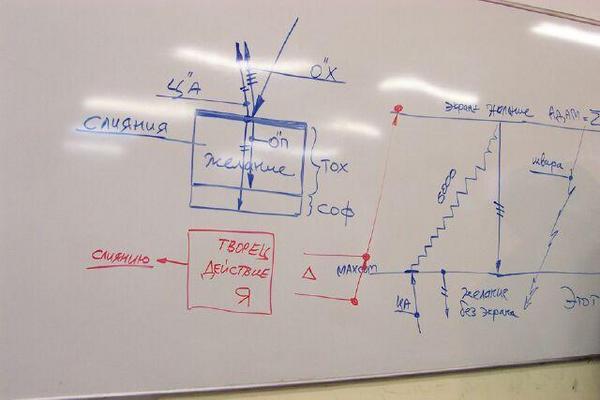 О"Х
Ц"А
СЛИЯНИЯ
О"П
желание
ТОХ
СОФ
ТВОРЕЦ
ДЕЙСТВИЕ
Я
СЛИЯНИЮ
Δ
МАХСОМ
6000
ЭКРАН + желание
АДАМ = Σ
ИБУРА
ИА
желание
без экрана
Этот